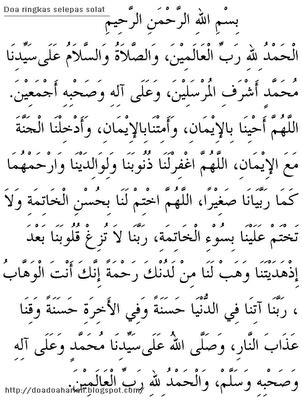 Doa ringkas selepas solat
بِسْمِ اللهِ الرَّحْمَنِ الرَّحِيْمِ
الْحَمْدُ لِلهِ رَبِّ الْعَالَمِيْنَ، وَالصَّلاَةُ وَالسَّلاَمُ عَلَى سَيِّدِنَا
مُحَمَّدٍ أَشْرَفِ الْمُرْسَلِيْنَ، وَعَلَى آلِهِ وَصَحْبِهِ أَجْمَعِيْنَ.
اللَّهُمَّ أَحْيِنَا بِالإِيْمَانِ، وَأَمِتْنَابِالإِيْمَانِ، وَأَدْخِلْنَا الْجَنَّةَ
مَعَ الإِيْمَانِ، اللَّهُمَّ اغْفِرْلَنَا ذُنُوبَنَا وَلِوَالِدَيْنَا وَارْحَمْهُمَا
كَمَا رَبَّيَانَا صَغِيْرًا، اللَّهُمَّ اخْتِمْ لَنَا بِحُسْنِ الْخَاتِمةِ وَلاَ
تَخْتِمْ عَلَيْنَا بِسُوْءِ الْخَاتِمَةِ، رَبَّنَا لاَ تُزِغْ قُلُوبَنَا بَعْدَ
إِذْهَدَيْتَنَا وَهَبْ لَنَا مِنْ لَدُنْكَ رَحْمَةً إِنَّكَ أَنْتَ الْوَهَّابُ
، رَبَّنَا آتِنَا فِي الدُّنْيَا حَسَنَةً وَفِي الأَخِرَةِ حَسَنَةً وَقِنَا
عَذَابَ النَّارِ، وَصَلَّى اللهُ عَلَى سَيِّدِنَا مُحَمَّدٍ وَعَلَى آلِهِ
وَصَحْبِهِ وَسَلَّمَ، وَالْحَمْدُ لِلهِ رَبِّ الْعَالَمِيْنَ.
http://doadoaharian.blogspot.com/